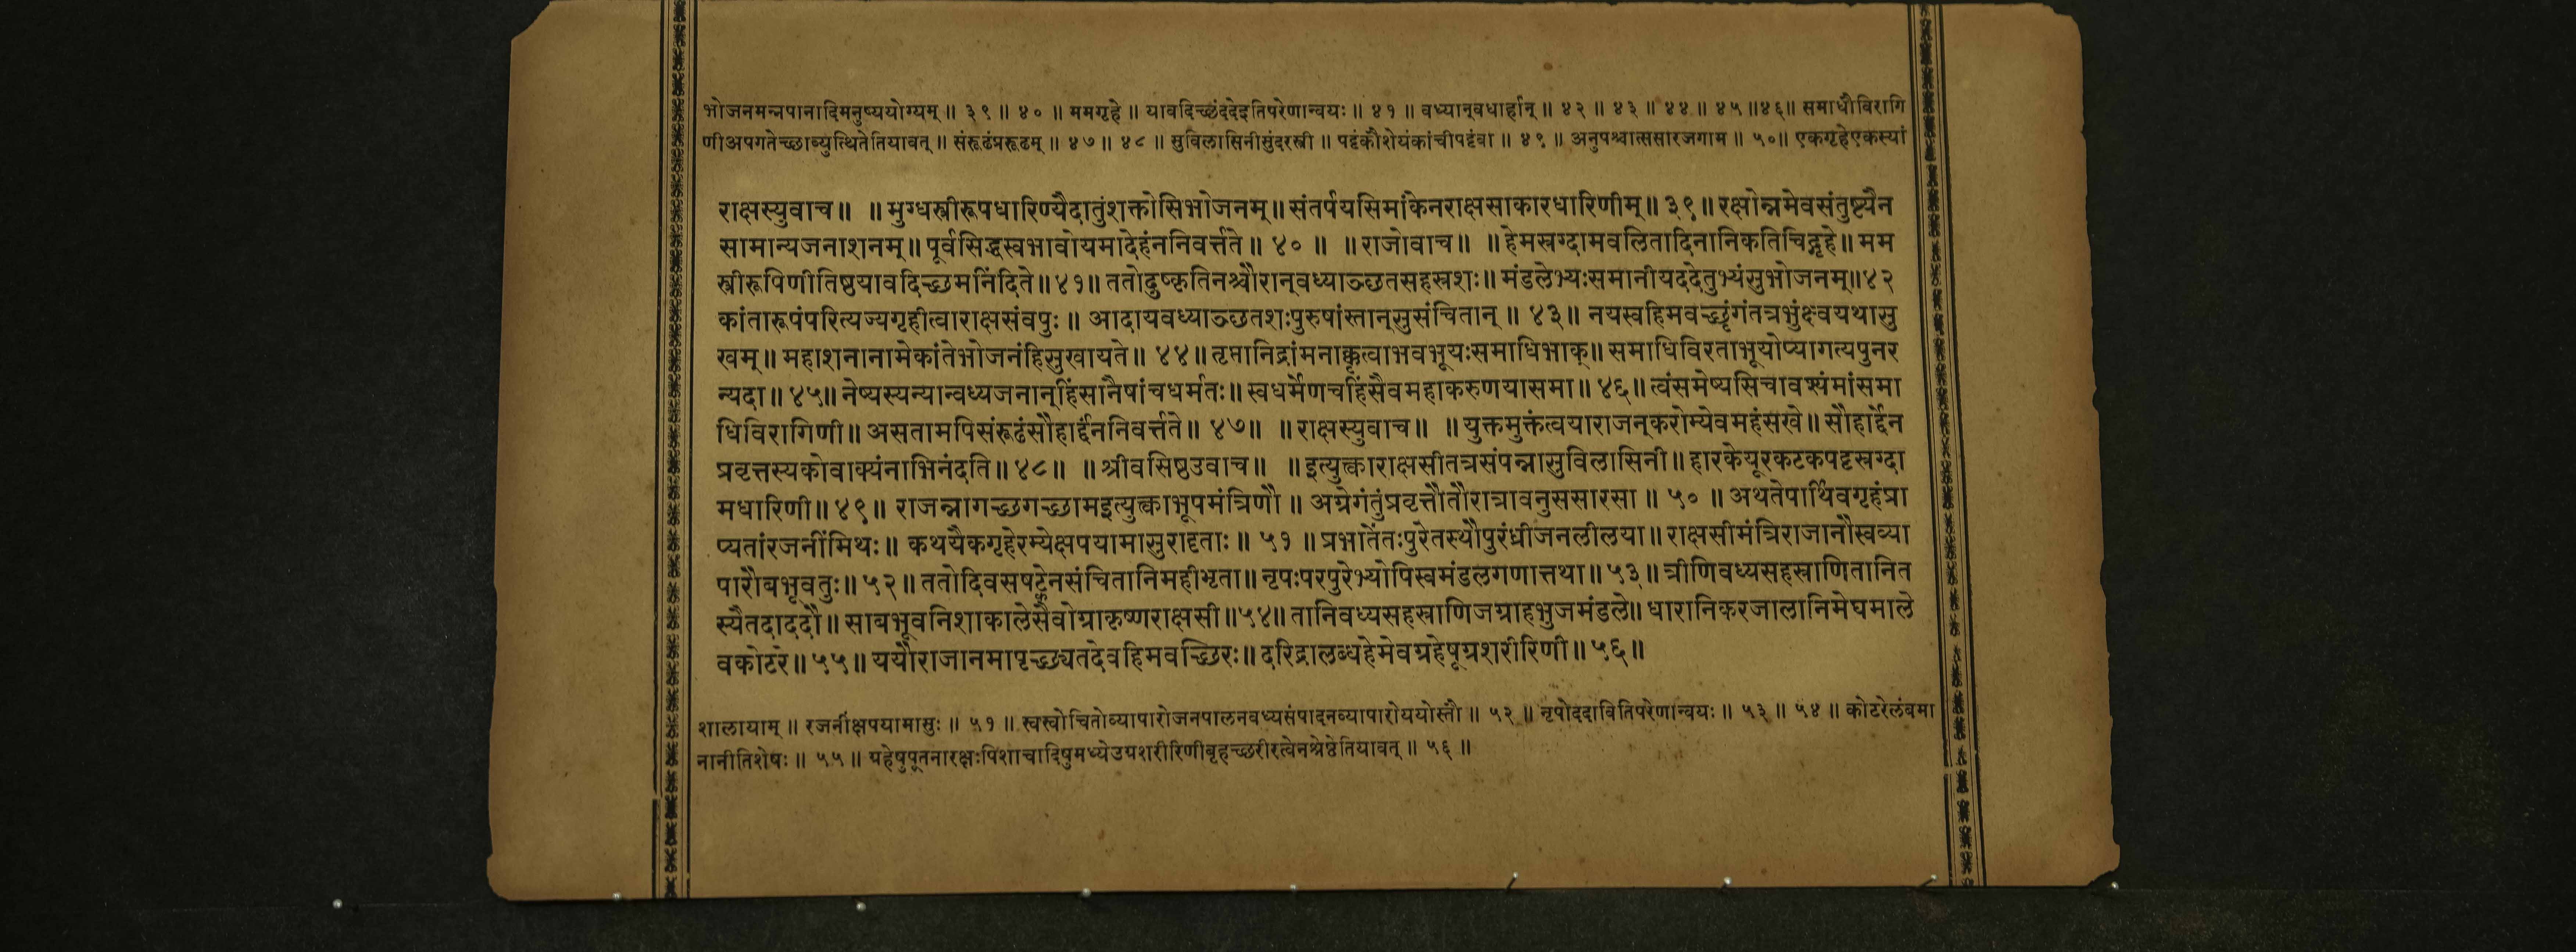 भोजनमन्नपानादिमनुष्ययोग्यम् ॥ ३९ ॥ ४० ॥ ममगृहे ॥ यावदिच्छंददेइतिपरेणान्वयः ॥ ४१ ॥ वध्यान्वधार्हान् ॥ ४२ ॥ ४३ ॥ ४४ ॥ ४५ ॥४६॥ समाधौविरागि
णीअपगतेच्छाव्युत्थितेतियावत् ॥ संरूढंप्ररूढम् ॥ ४७ ॥ ४८ ॥ सुविलासिनीसुंदरस्त्री ॥ पट्टंकौशेयंकांचीपट्टंवा ॥ ४९ ॥ अनुपश्चात्ससारजगाम ॥ ५०॥ एकगृहेएकस्यां
राक्षस्युवाच ॥ ॥ मुग्धस्त्रीरूपधारिण्यैदातुंशक्तोसिभोजनम् ॥ संतर्पयसिमांकेनराक्षसाकारधारिणीम् ॥ ३९ ॥ रक्षोन्नमेवसंतुष्ट्यैन
सामान्यजनाशनम् ॥ पूर्वसिद्धस्वभावोयमादेहंननिवर्त्तते ॥ ४० ॥ ॥ राजोवाच ॥ ॥ हेमस्रग्दामवलितादिनानिकतिचिद्गृहे ॥ मम
स्त्रीरूपिणीतिष्ठयावदिच्छमनिंदिते ॥ ४१ ॥ ततोदुष्कृतिनश्चौरान्वध्याञ्छतसहस्रशः ॥ मंडलेभ्यःसमानीयददेतुभ्यंसुभोजनम् ॥४२
कांतारूपंपरित्यज्यगृहीत्वाराक्षसंवपुः ॥ आदायवध्याञ्छतशःपुरुषांस्तान्सुसंचितान् ॥ ४३ ॥ नयस्वहिमवच्छृंगंतत्रभुंक्ष्वयथासु
खम् ॥ महाशनानामेकांतेभोजनंहिसुखायते ॥ ४४ ॥ तृप्तानिद्रांमनाक्कृत्वाभवभूयःसमाधिभाक् ॥ समाधिविरताभूयोप्यागत्यपुनर
न्यदा ॥ ४५ ॥ नेष्यस्यन्यान्वध्यजनान्हिंसानैषांचधर्मतः ॥ स्वधर्मेणचहिंसैवमहाकरुणयासमा ॥ ४६ ॥ त्वंसमेष्यसिचावश्यंमांसमा
धिविरागिणी ॥ असतामपिसंरूढंसौहार्द्दंननिवर्त्तते ॥ ४७ ॥ ॥ राक्षस्युवाच ॥ ॥ युक्तमुक्तंत्वयाराजन्करोम्येवमहंसखे ॥ सौहार्द्देन
प्रवृत्तस्यकोवाक्यंनाभिनंदति ॥ ४८ ॥ ॥ श्रीवसिष्ठउवाच ॥ ॥ इत्युक्त्वाराक्षसीतत्रसंपन्नासुविलासिनी ॥ हारकेयूरकटकपट्टस्रग्दा
मधारिणी ॥ ४९ ॥ राजन्नागच्छगच्छामइत्युक्त्वाभूपमंत्रिणौ ॥ अग्रेगंतुंप्रवृत्तौतौरात्रावनुससारसा ॥ ५० ॥ अथतेपार्थिवगृहंप्रा
प्यतांरजनींमिथः ॥ कथयैकगृहेरम्येक्षपयामासुरादृताः ॥ ५१ ॥ प्रभातेंतःपुरेतस्थौपुरंध्रीजनलीलया ॥ राक्षसीमंत्रिराजानौस्वव्या
पारौबभूवतुः ॥ ५२ ॥ ततोदिवसषट्केनसंचितानिमहीभृता ॥ नृपःपरपुरेभ्योपिस्वमंडलगणात्तथा ॥ ५३ ॥ त्रीणिवध्यसहस्राणितानित
स्यैतदाददौ ॥ साबभूवनिशाकालेसैवोग्राकृष्णराक्षसी ॥५४॥ तानिवध्यसहस्राणिजग्राहभुजमंडले ॥ धारानिकरजालानिमेघमाले
वकोटरे ॥ ५५ ॥ ययौराजानमापृच्छ्यतदेवहिमवच्छिरः ॥ दरिद्रालब्धहेमेवग्रहेषूग्रशरीरिणी ॥ ५६ ॥
शालायाम् ॥ रजनींक्षपयामासुः ॥ ५१ ॥ स्वस्वोचितोव्यापारोजनपालनवध्यसंपादनव्यापारोययोस्तौ ॥ ५२ ॥ नृपोददावितिपरेणान्वयः ॥ ५३ ॥ ५४ ॥ कोटरेलंबमा
नानीतिशेषः ॥ ५५ ॥ ग्रहेषुपूतनारक्षःपिशाचादिषुमध्येउग्रशरीरिणीबृहच्छरीरत्वेनश्रेष्ठेतियावत् ॥ ५६ ॥